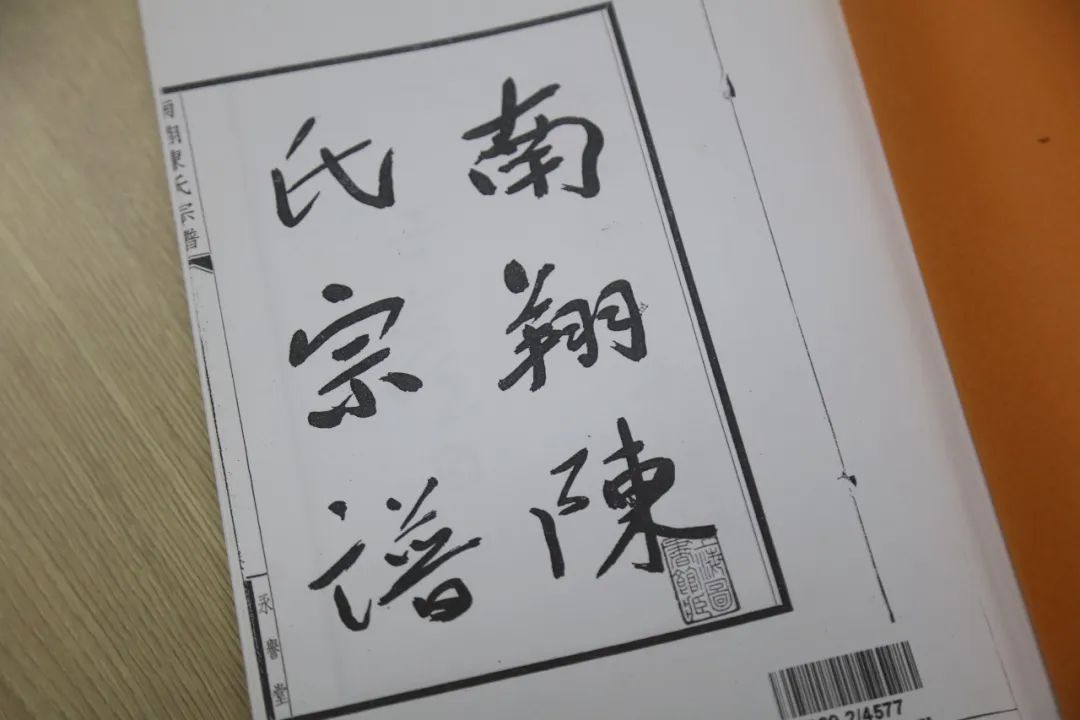 南翔陳
氏宗譜
南翔陳氏宗譜
上海圖
書館藏
2/4577